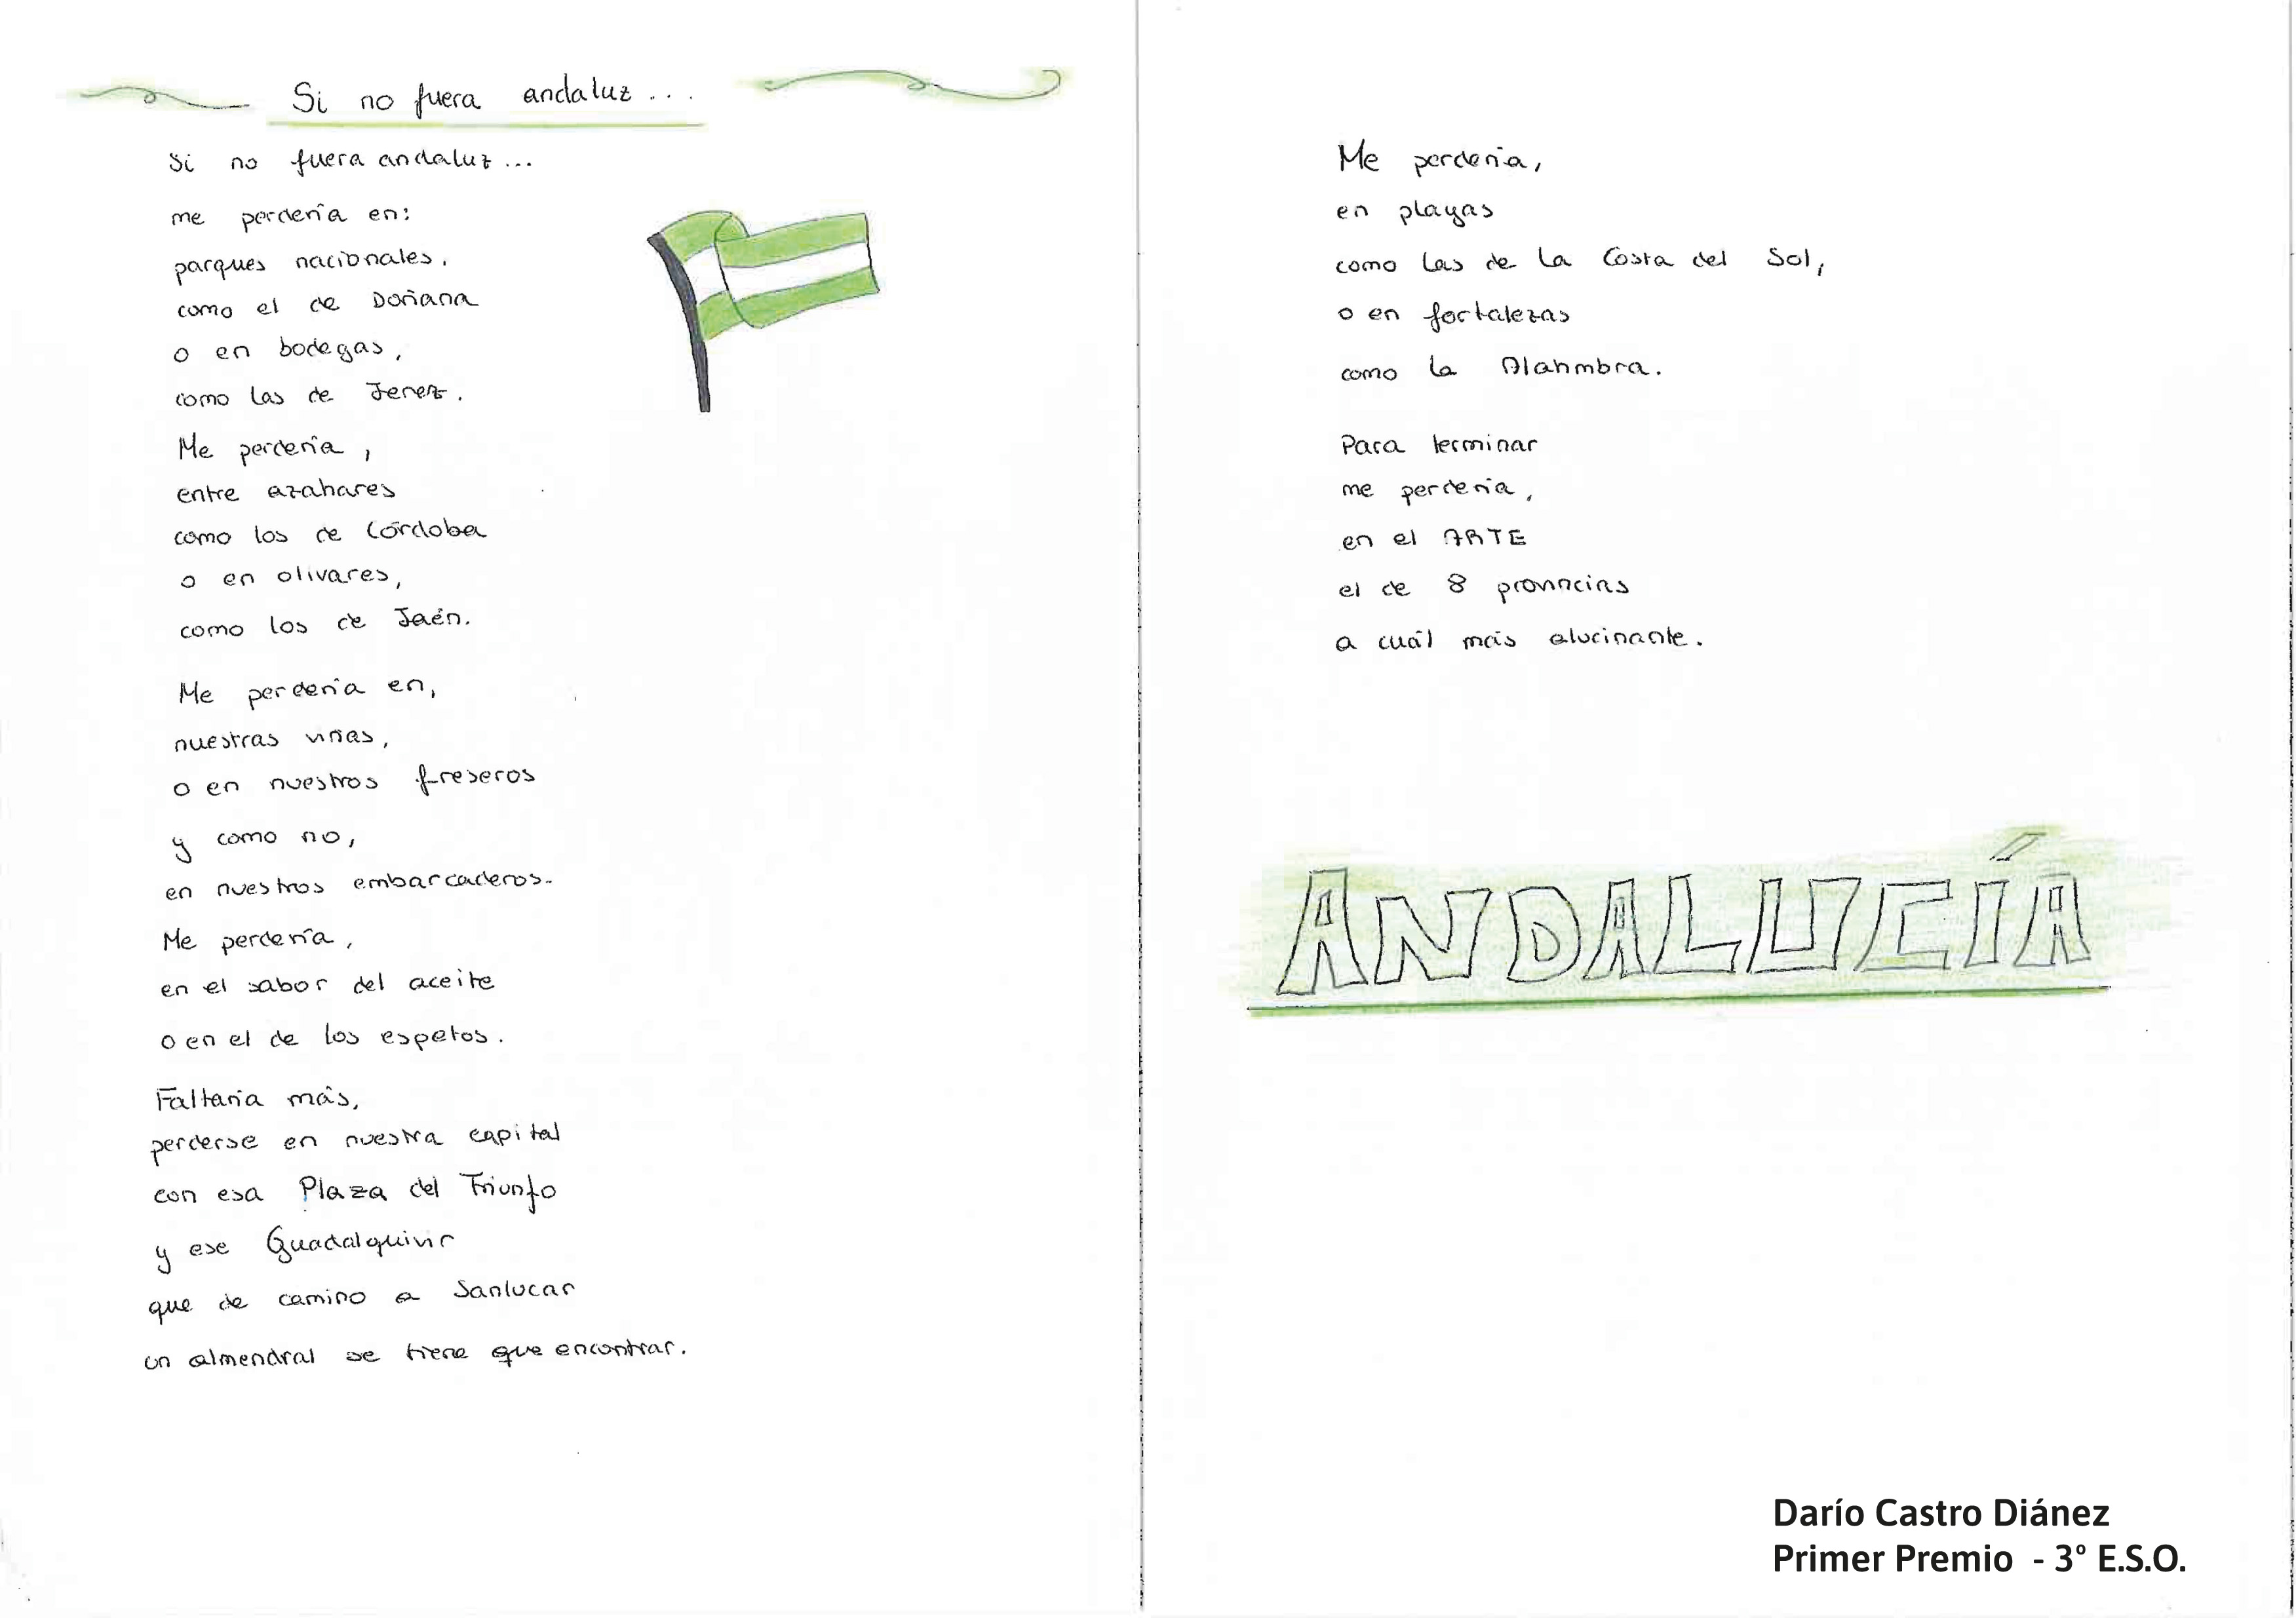 Si no fuera andaluz...
Si no fuera andaluz...
me perdería en:
parques nacionales,
como el de Doñana
o en bodegas,
como las de Jerez.
Me perdería,
entre azahares
como los de Córdoba
o en olivares,
como los de Jaén.
Me perdería en,
nuestras viñas,
o en nuestros freseros
y como no,
en nuestros embarcaderos.
Me perdería,
en el sabor del aceite
o en el de los espetos.
Faltaría más,
perderse en nuestra capital
con esa Plaza del Triunfo
y ese Guadalquivir
que de camino a Sanlucar
un almendral se tiene que encontrar.
Me perdería,
en playas
como las de la Costa del Sol,
o en fortalezas
como la Alahmbra.
Para terminar
me perdería,
en el ARTE
el de 8 provincias
a cuál más alucinante.
ANDALUCÍA
Darío Castro Diánez
Primer Premio - 3º E.S.O.